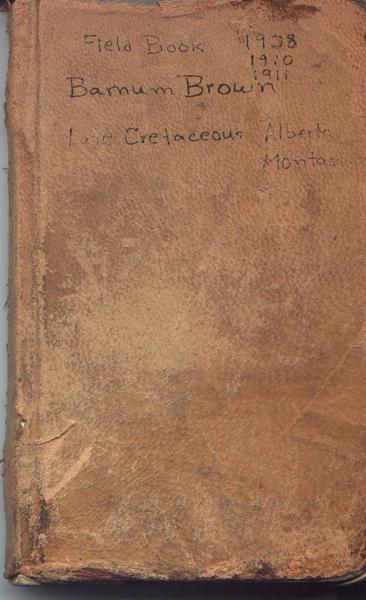 Field Book 1908
1910
1911
Barnum Brown
Late Cretaceous Alberta
Montana